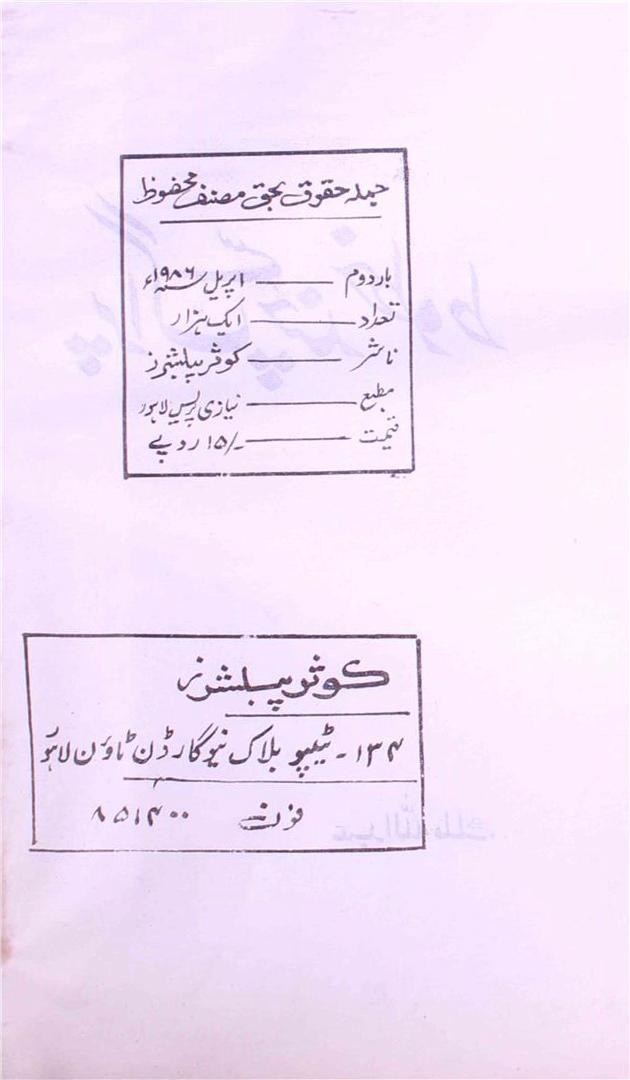 جملہ حقوق بحق مصنف محفوظ
بار دوم ——— اپریل سنہ ۱۹۸۶ء
تعداد ——— ایک ہزار
ناشر ——— کوثر پبلشرز
مطبع ——— نیازی پریس لاہور
قیمت ——— ۱۵/- روپے
کوثر پبلشرز
۱۳۴ - ٹیپو بلاک نیو گارڈن ٹاؤن لاہور
فون ۸۵۱۴۰۰
عبداللہ ملک